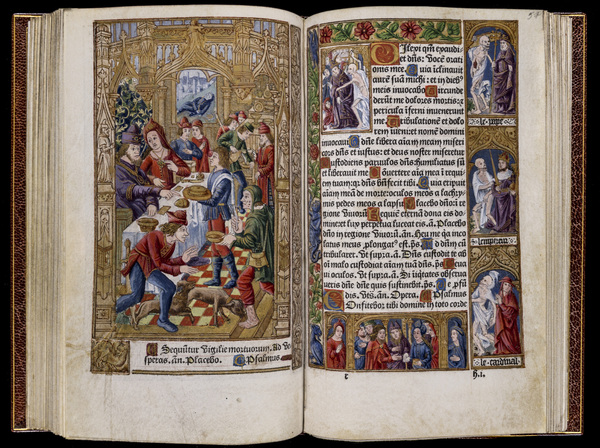 Sequūtur vigilie mortuorum. Ad ve
speras. añ. Placebo. Psalmus
Ilexi qm̄ exaudi
et dñs: vocē orati
onis mee. Quia īclinauit
aurē suā michi: et in dieb9
meis inuocabo. Circunde
derūt me dolores mortis: et
pericula īferni inuenerunt
me. Tribulationē et dolo
rem inueni: et nomē domini
inuocaui. O dñe libera aīam meam miseri
cors dñs et iustus: et deus noster miseretur
Custodiens paruulos dñs: humiliatus sū
et liberauit me. Cōuertere aīa mea ī requi
em tuam: q̄ dñs bn̄fecit tibi. Quia eripuit
aīam meā de morte: oculos meos a lachry
mis pedes meos a lapsu. Placebo dño: ī re
gione viuorū. Requiē eternā dona eis do
mine: et lux perpetua luceat eis. añ. Placebo
dño in regione viuorū. añ. Heu me. Ad dñm cū
tribularer. Vt supra. añ. Dñs custodit te ab
oī malo custodiat aīam tuā dñs. ps. Leuaui
oculos. Vt supra. añ. Si iniquitates obserua
ueris dñe dñe quis sustinebit. ps. De profū
dis. Vt s. añ. Opera. Psalmus
Onfitebor tibi domine in toto corde
h.i.
le pape
lempereur
le cardinal